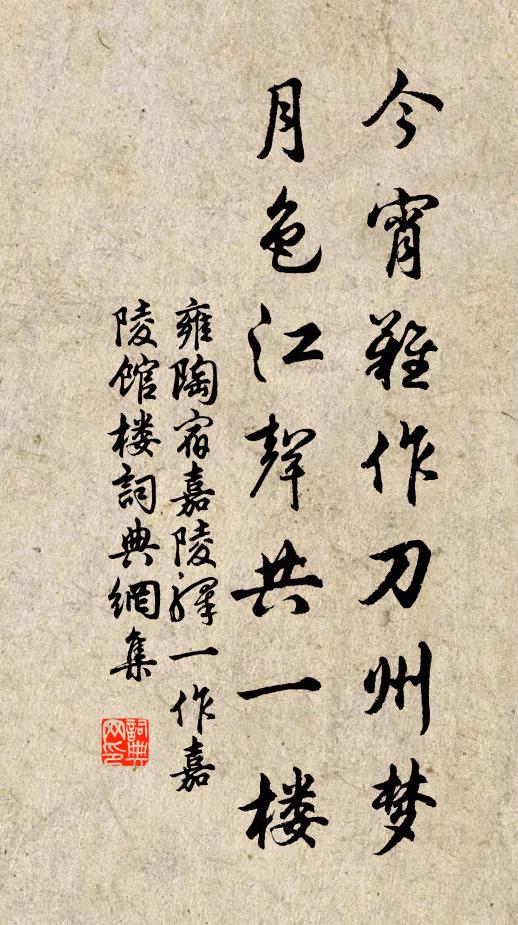 今宵難作刀州梦
月色江聲共一楼
雍陶宿嘉陵驿一作嘉
陵馆楼詞典網集
詞典网印